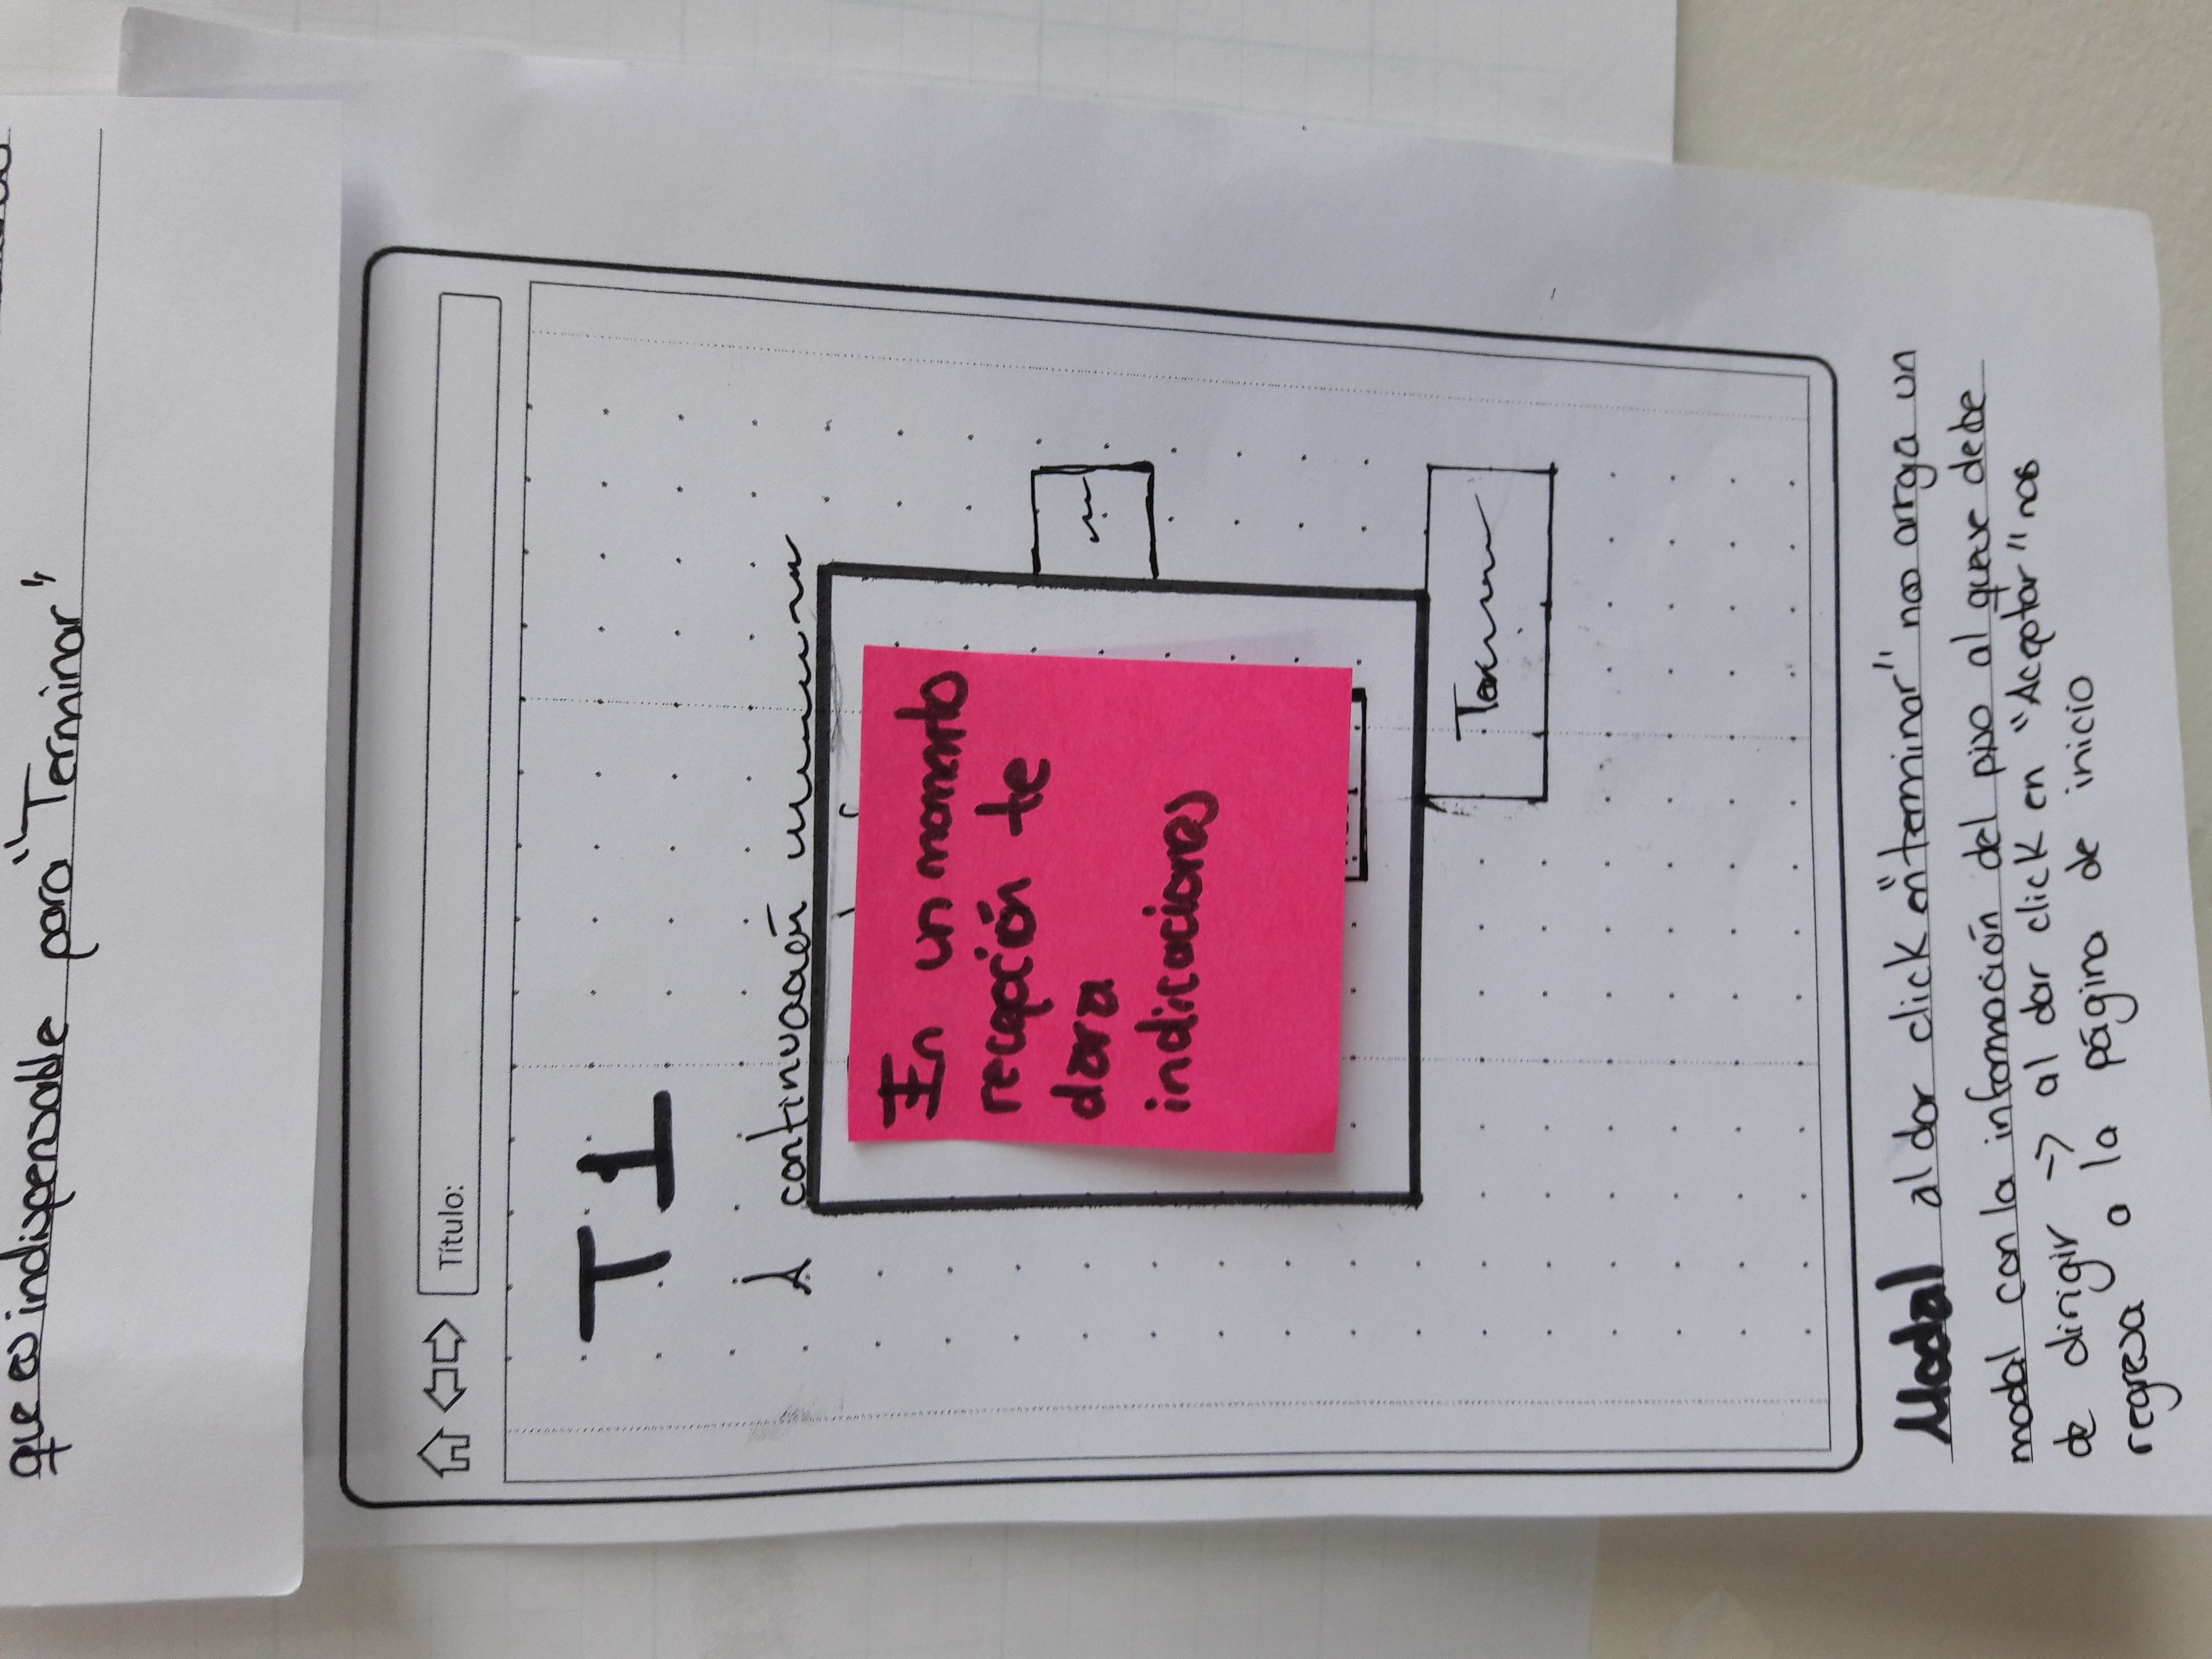 que es indispensable para "Terminar"
Título:
T1
A continuación
En un momento
recepción te
dara
indicaciones
Modal al dar click en "terminar" nos arrga un
modal con la información del piso al que se debe
de dirigir -> al dar click en "Aceptar" nos
regresa a la página de inicio